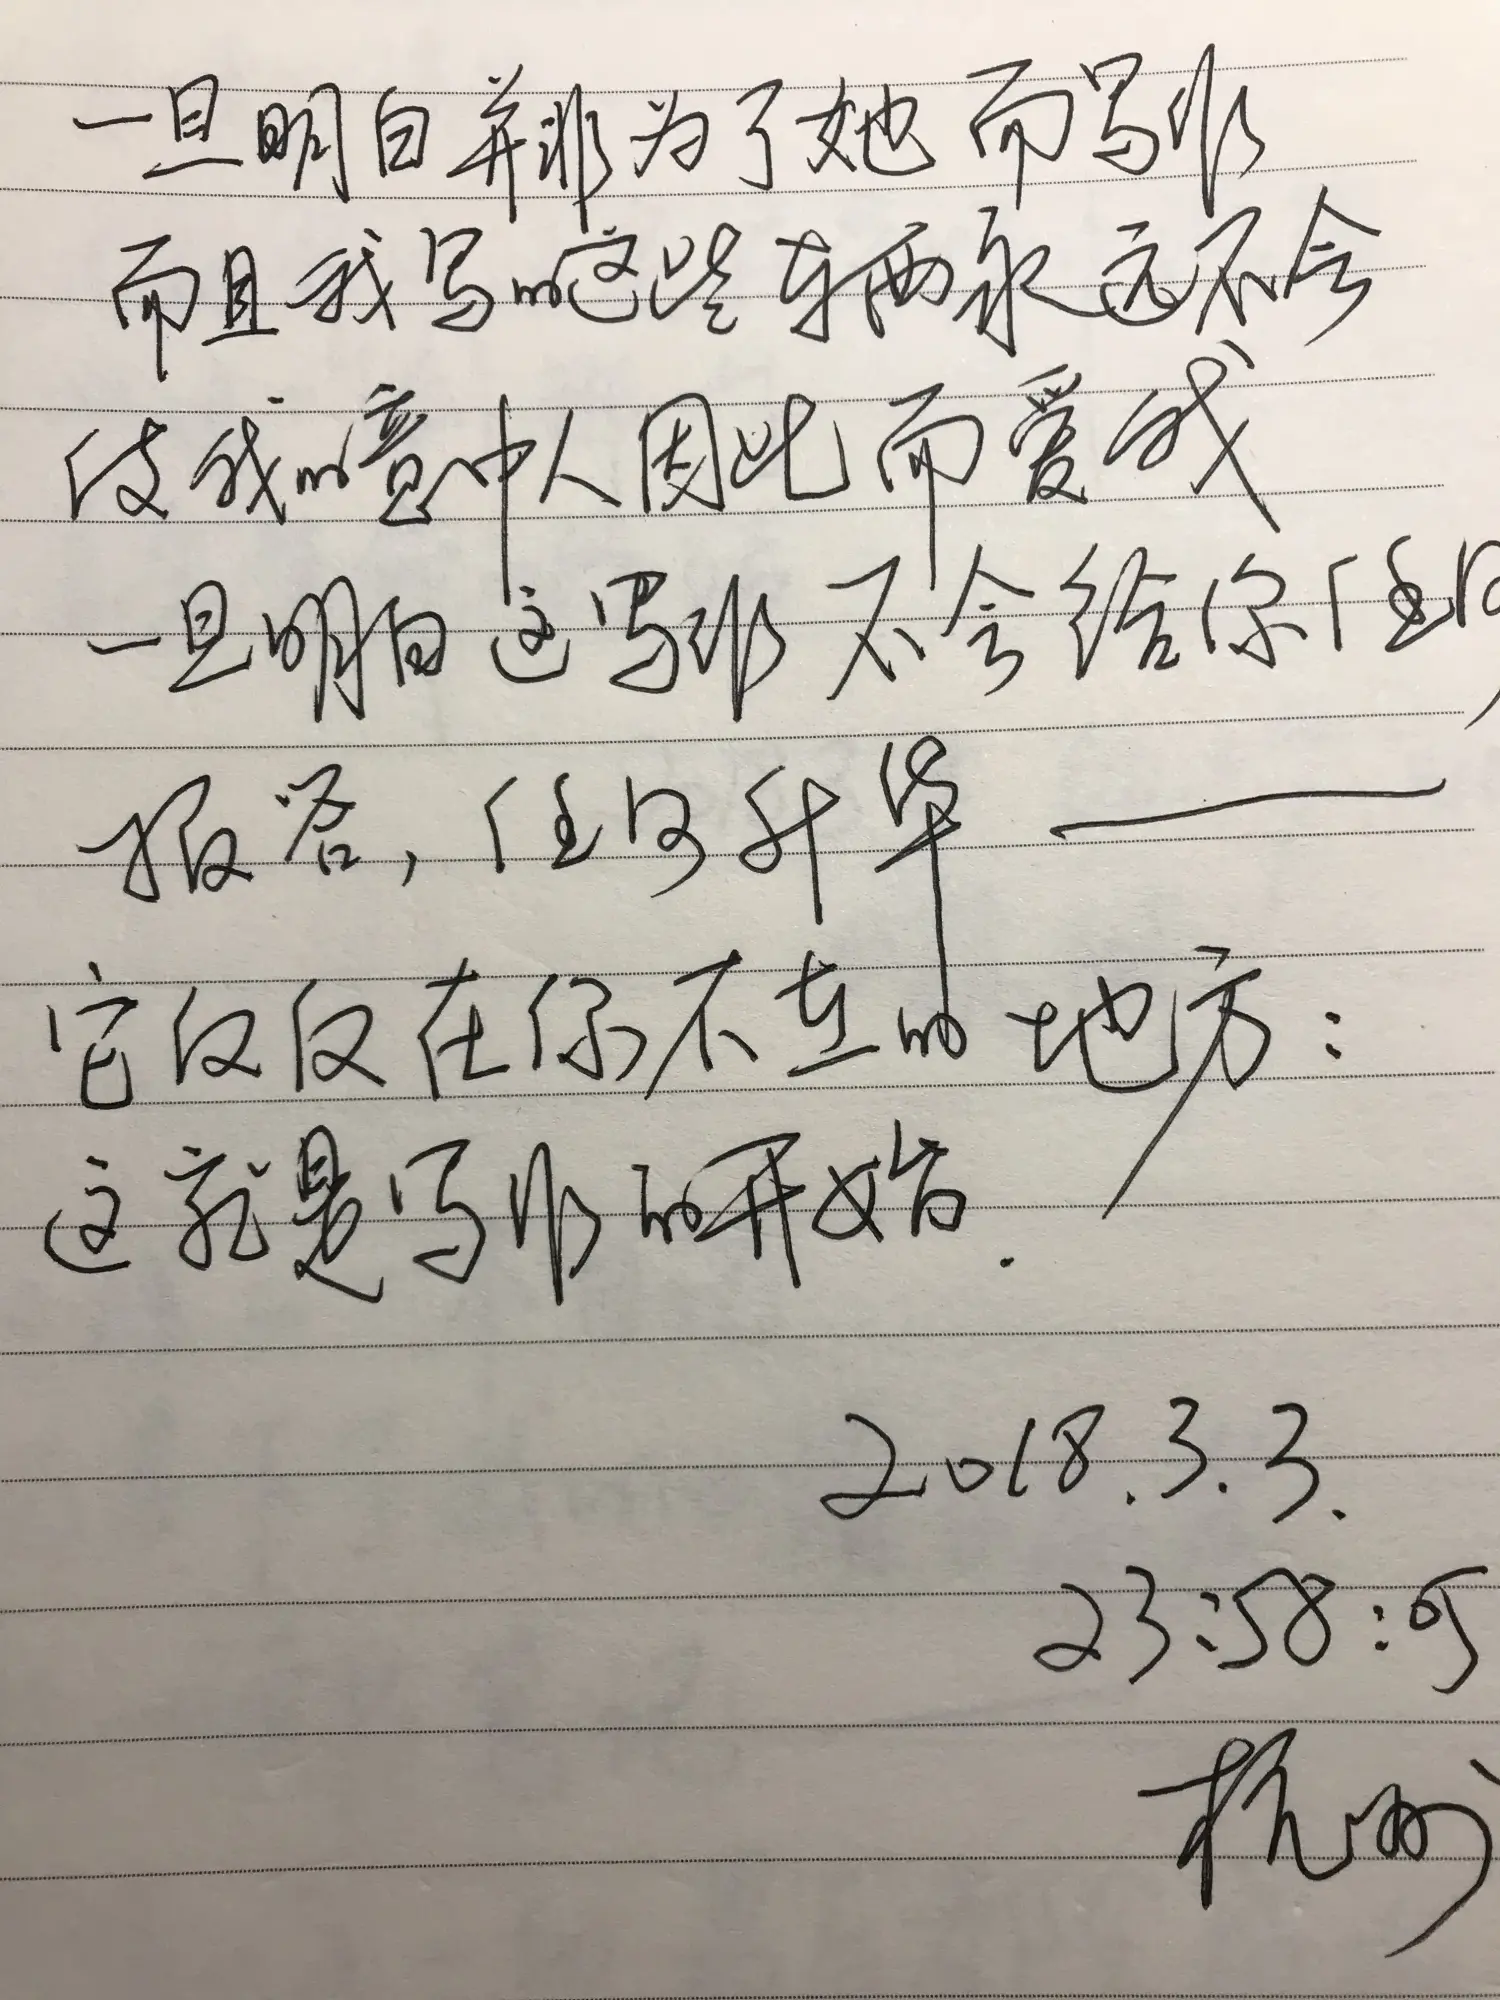 一旦明白并非为了她而写作
而且我写的这些东西永远不会
使我的意中人因此而爱我
一旦明白这写作不会给你任何
报答，任何升华——
它仅仅在你不在的地方：
这就是写作的开始.
2018.3.3.
23:58:05
杭州